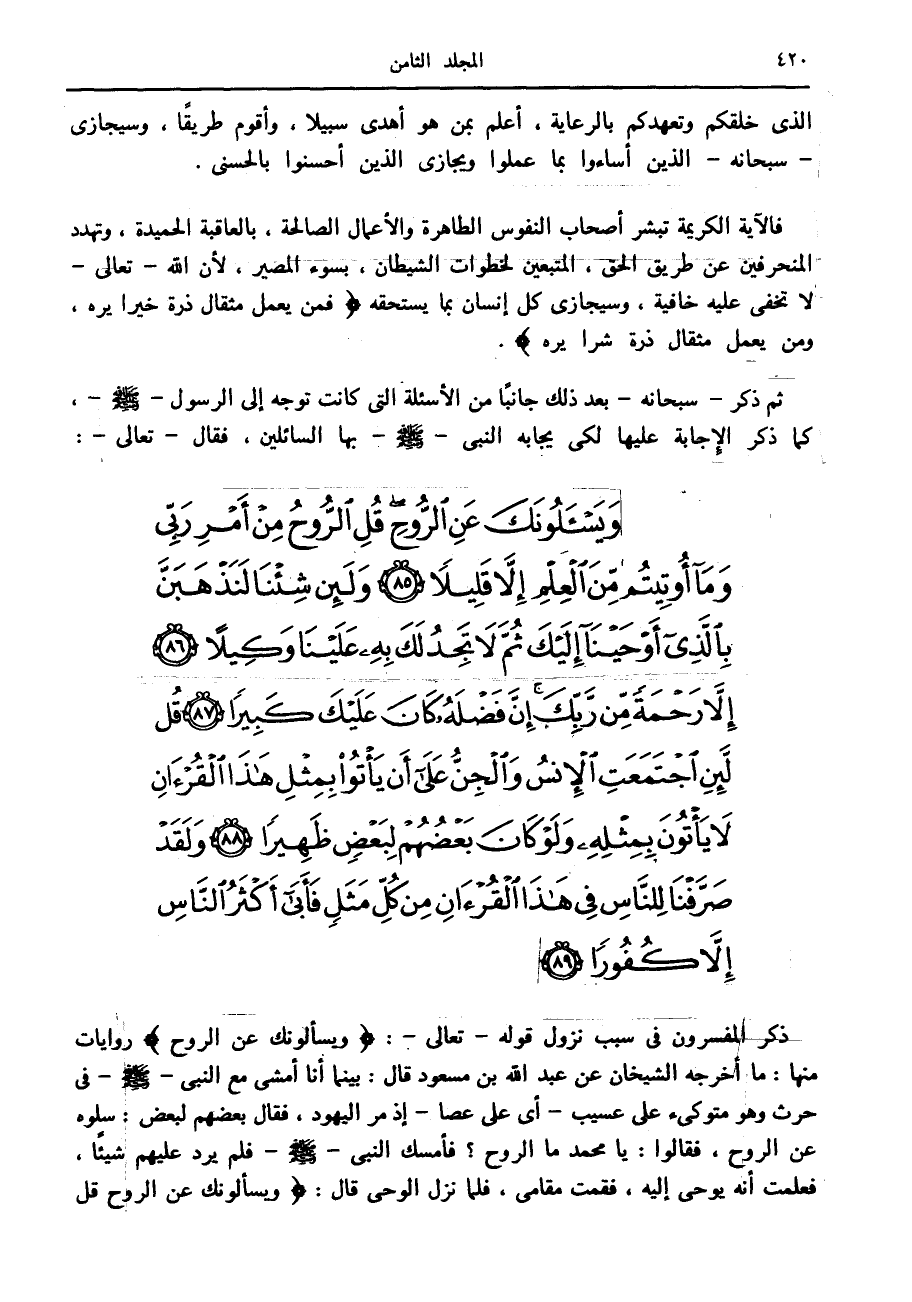 ٤٢٠ المجلد الثامن
الذى خلقكم وتعهدكم بالرعاية ، أعلم بمن هو أهدى سبيلا ، وأقوم طريقًا ، وسيجازى
– سبحانه – الذين أساءوا بما عملوا ويجازى الذين أحسنوا بالحسنى .
فالآية الكريمة تبشر أصحاب النفوس الطاهرة والأعمال الصالحة ، بالعاقبة الحميدة ، وتهدد
المنحرفين عن طريق الحق ، المتبعين لخطوات الشيطان ، بسوء المصير ، لأن الله – تعالى –
لا تخفى عليه خافية ، وسيجازى كل إنسان بما يستحقه ﴿ فمن يعمل مثقال ذرة خيرا يره ،
ومن يعمل مثقال ذرة شرا يره ﴾ .
ثم ذكر – سبحانه – بعد ذلك جانبًا من الأسئلة التى كانت توجه إلى الرسول – ﷺ – ،
كما ذكر الإجابة عليها لكى يجابه النبى – ﷺ – بها السائلين ، فقال – تعالى – :
وَيَسْـَٔلُونَكَ عَنِ ٱلرُّوحِ ۖ قُلِ ٱلرُّوحُ مِنْ أَمْرِ رَبِّى
وَمَآ أُوتِيتُم مِّنَ ٱلْعِلْمِ إِلَّا قَلِيلًا ٨٥ وَلَئِن شِئْنَا لَنَذْهَبَنَّ
بِٱلَّذِىٓ أَوْحَيْنَآ إِلَيْكَ ثُمَّ لَا تَجِدُ لَكَ بِهِۦ عَلَيْنَا وَكِيلًا ٨٦
إِلَّا رَحْمَةً مِّن رَّبِّكَ ۚ إِنَّ فَضْلَهُۥ كَانَ عَلَيْكَ كَبِيرًا ٨٧ قُل
لَّئِنِ ٱجْتَمَعَتِ ٱلْإِنسُ وَٱلْجِنُّ عَلَىٰٓ أَن يَأْتُوا۟ بِمِثْلِ هَٰذَا ٱلْقُرْءَانِ
لَا يَأْتُونَ بِمِثْلِهِۦ وَلَوْ كَانَ بَعْضُهُمْ لِبَعْضٍ ظَهِيرًا ٨٨ وَلَقَدْ
صَرَّفْنَا لِلنَّاسِ فِى هَٰذَا ٱلْقُرْءَانِ مِن كُلِّ مَثَلٍ فَأَبَىٰٓ أَكْثَرُ ٱلنَّاسِ
إِلَّا كُفُورًا ٨٩
ذكر المفسرون فى سبب نزول قوله – تعالى – : ﴿ ويسألونك عن الروح ﴾ روايات
منها : ما أخرجه الشيخان عن عبد الله بن مسعود قال : بينما أنا أمشى مع النبى – ﷺ – فى
حرث وهو متوكىء على عسيب – أى على عصا – إذ مر اليهود ، فقال بعضهم لبعض : سلوه
عن الروح ، فقالوا : يا محمد ما الروح ؟ فأمسك النبى – ﷺ – فلم يرد عليهم شيئًا ،
فعلمت أنه يوحى إليه ، فقمت مقامى ، فلما نزل الوحى قال : ﴿ ويسألونك عن الروح قل